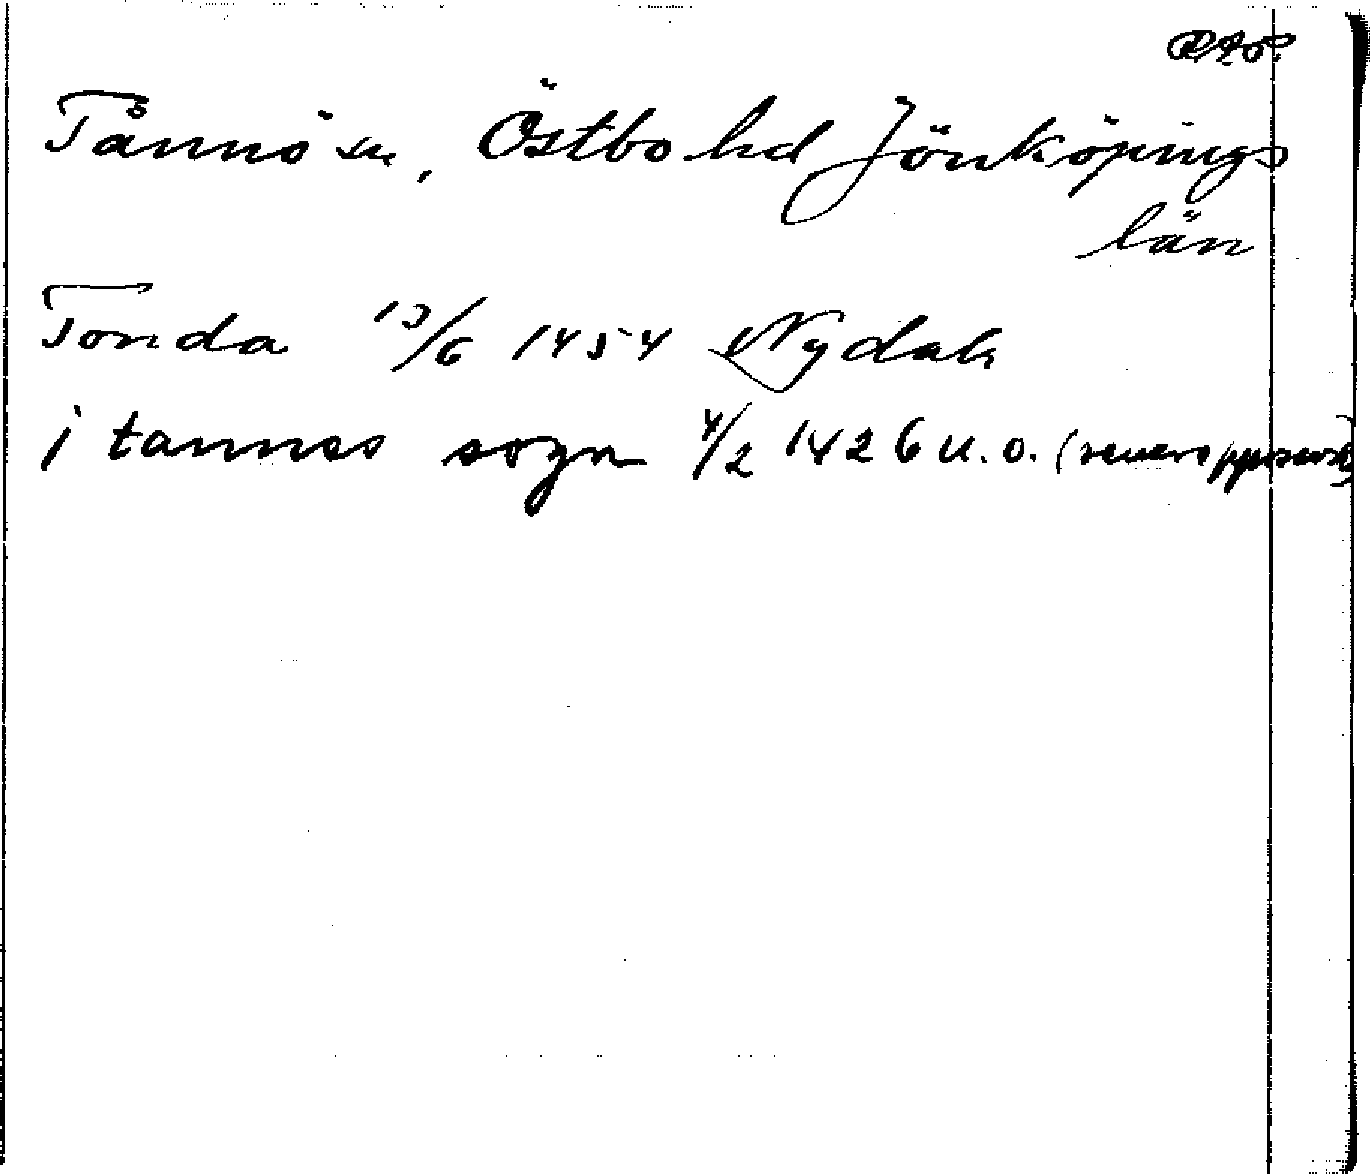 Tånnö sn, Östbo hd Jönköpings
län
Tonda 13/6 1454 Nydala
i tannes sogn 4/2 1426 u. o.